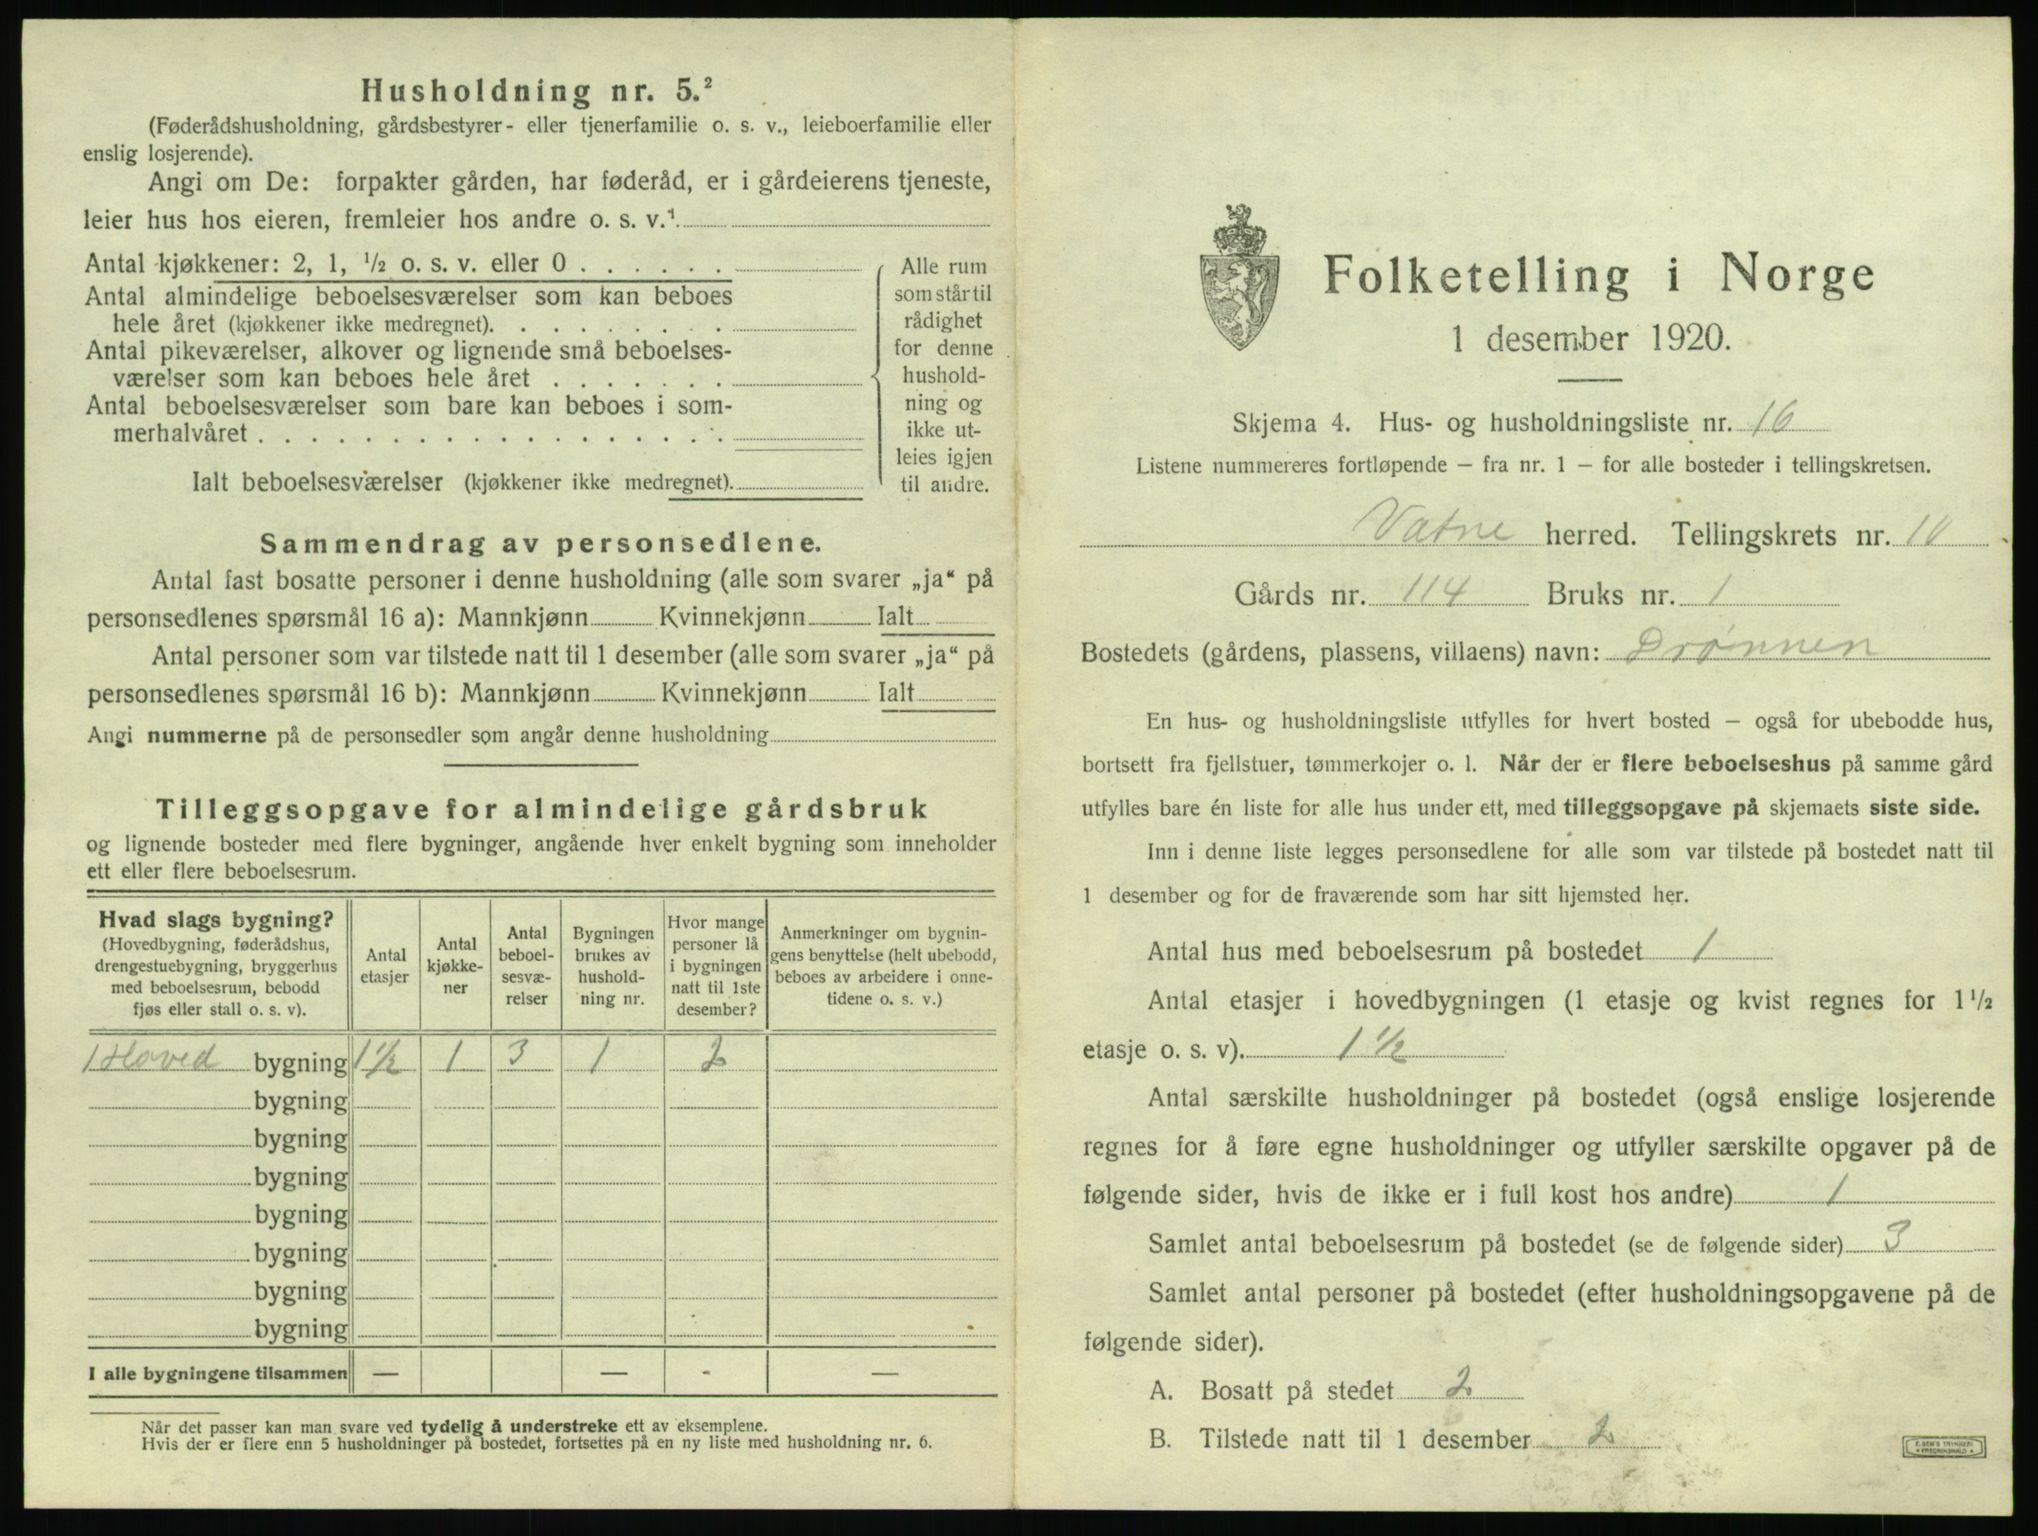 Husholdning nr. 5.²
(Føderådshusholdning, gårdsbestyrer- eller tjenerfamilie o. s. v., leieboerfamilie eller
enslig losjerende).
Angi om De: forpakter gården, har føderåd, er i gårdeierens tjeneste,
leier hus hos eieren, fremleier hos andre o. s. v.¹
Antal kjøkkener: 2, 1, ½ o. s. v. eller 0
Antal almindelige beboelsesværelser som kan beboes
hele året (kjøkkener ikke medregnet).
Antal pikeværelser, alkover og lignende små beboelses-
værelser som kan beboes hele året
Antal beboelsesværelser som bare kan beboes i som-
merhalvåret
Ialt beboelsesværelser (kjøkkener ikke medregnet).
Alle rum
som står til
rådighet
for denne
hushold-
ning og
ikke ut-
leies igjen
til andre.
Sammendrag av personsedlene.
Antal fast bosatte personer i denne husholdning (alle som svarer „ja“ på
personsedlenes spørsmål 16 a): Mannkjønn Kvinnekjønn Ialt
Antal personer som var tilstede natt til 1 desember (alle som svarer „ja“ på
personsedlenes spørsmål 16 b): Mannkjønn Kvinnekjønn Ialt
Angi nummerne på de personsedler som angår denne husholdning
Tilleggsopgave for almindelige gårdsbruk
og lignende bosteder med flere bygninger, angående hver enkelt bygning som inneholder
ett eller flere beboelsesrum.
Hvad slags bygning?
(Hovedbygning, føderådshus,
drengestuebygning, bryggerhus
med beboelsesrum, bebodd
fjøs eller stall o. s. v).
Antal
etasjer
Antal
kjøkke-
ner
Antal
beboel-
sesvæ-
relser
Bygningen
brukes av
hushold-
ning nr.
Hvor mange
personer lå
i bygningen
natt til 1ste
desember?
Anmerkninger om bygnin-
gens benyttelse (helt ubebodd,
beboes av arbeidere i onne-
tidene o. s. v.)
1 Hoved bygning 1½ 1 3 1 2
bygning
bygning
bygning
bygning
bygning
bygning
bygning
I alle bygningene tilsammen — — - —
Når det passer kan man svare ved tydelig å understreke ett av eksemplene.
Hvis der er flere enn 5 husholdninger på bostedet, fortsettes på en ny liste med husholdning nr. 6.
Folketelling i Norge
1 desember 1920.
Skjema 4. Hus- og husholdningsliste nr. 16
Listene nummereres fortløpende — fra nr. 1 — for alle bosteder i tellingskretsen.
Vatne herred. Tellingskrets nr. 10
Gårds nr. 114 Bruks nr. 1
Bostedets (gårdens, plassens, villaens) navn: Drønnen
En hus- og husholdningsliste utfylles for hvert bosted — også for ubebodde hus,
bortsett fra fjellstuer, tømmerkojer o. l. Når der er flere beboelseshus på samme gård
utfylles bare én liste for alle hus under ett, med tilleggsopgave på skjemaets siste side.
Inn i denne liste legges personsedlene for alle som var tilstede på bostedet natt til
1 desember og for de fraværende som har sitt hjemsted her.
Antal hus med beboelsesrum på bostedet 1
Antal etasjer i hovedbygningen (1 etasje og kvist regnes for 1½
etasje o. s. v). 1½
Antal særskilte husholdninger på bostedet (også enslige losjerende
regnes for å føre egne husholdninger og utfyller særskilte opgaver på de
følgende sider, hvis de ikke er i full kost hos andre) 1
Samlet antal beboelsesrum på bostedet (se de følgende sider) 3
Samlet antal personer på bostedet (efter husholdningsopgavene på de
følgende sider).
A. Bosatt på stedet 2
B. Tilstede natt til 1 desember 2